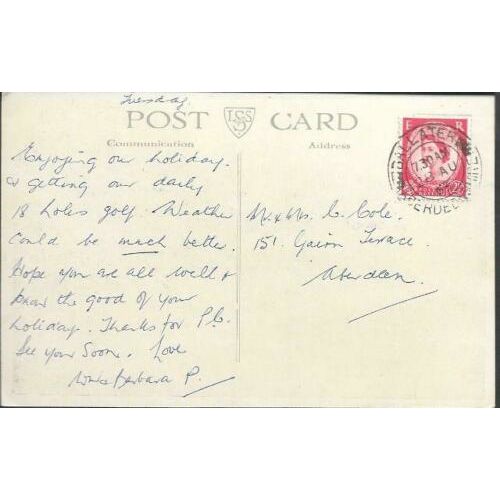 Tuesday
POST CARD
Communication
Address
Enjoying our holiday
& getting our daily
18 holes golf. Weather
could be much better.
Hope you are all well &
know the good of your
holiday. Thanks for P.C.
See you soon. Love
Barbara P.
Mr & Mrs C. Cole.
151, Terrace
Aberdeen.
E R
BALLATER
7.30 AM
AU
ABERDEEN